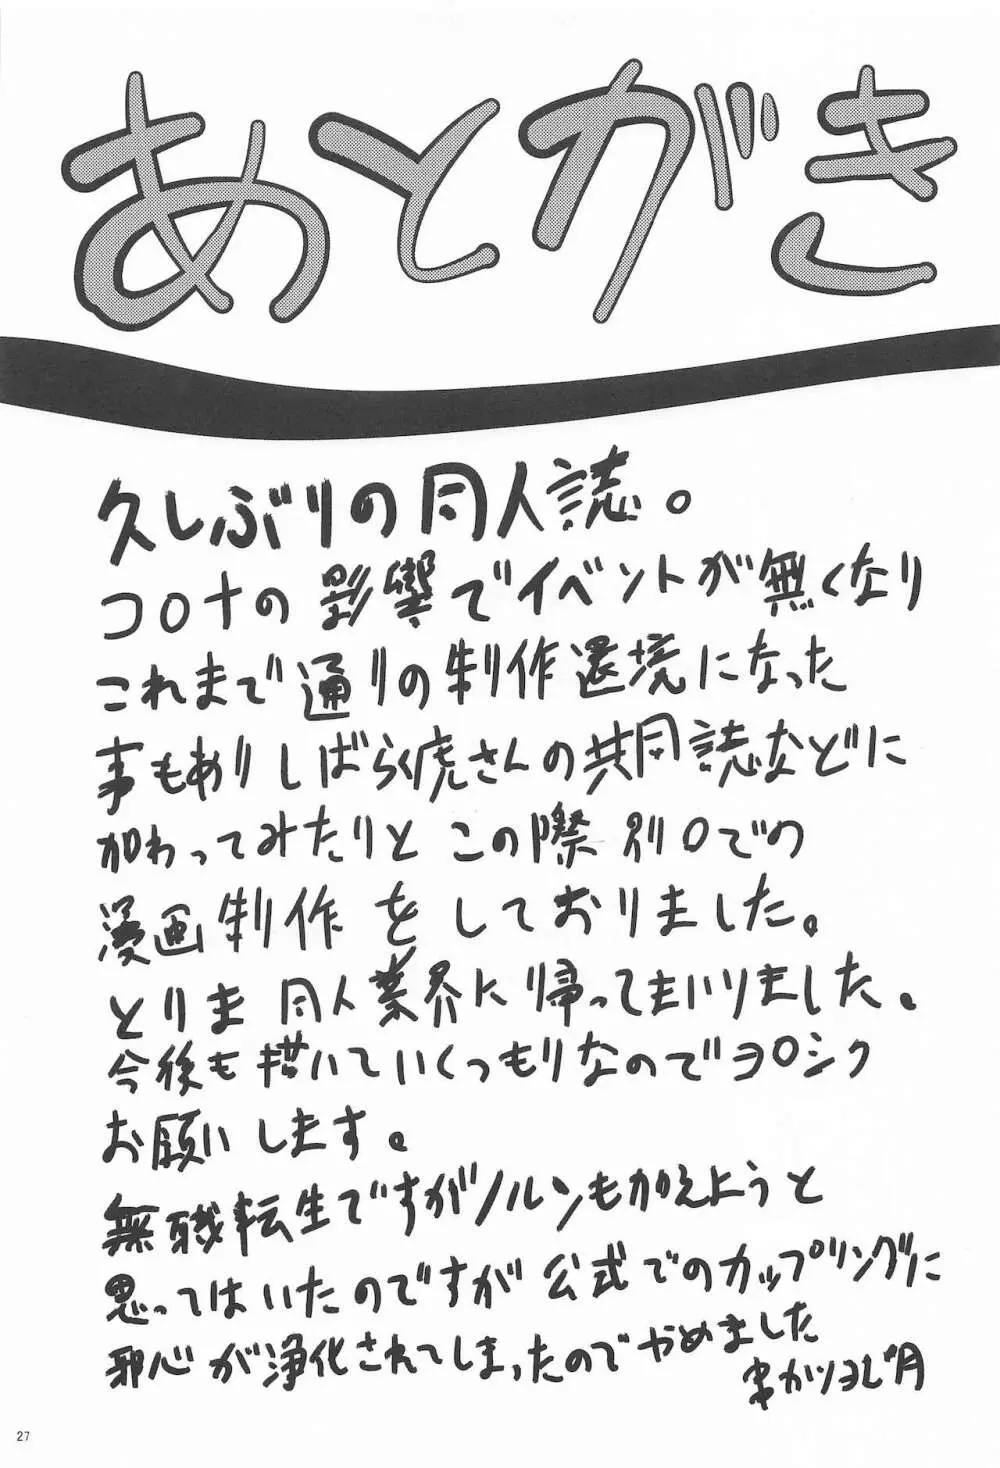 あとがき
久しぶりの同人誌。
コロナの影響でイベントが無くなり
これまで通りの制作環境になった
事もありしばらく虎さんの共同誌などに
加わってみたりと この際 別口での
漫画制作 をしておりました。
とりま 同人業界に帰ってまいりました。
今後も描いていくつもりなのでヨロシク
お願いします。
無職転生ですがノルンもかえようと
思ってはいたのですが 公式でのカップリングに
邪心が浄化されてしまったのでやめました
串かつヨじ月
27